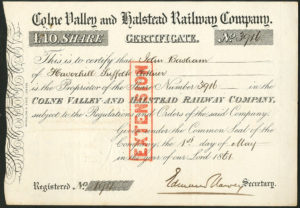 Colne Valley and Halstead Railway Company.
£10 SHARE CERTIFICATE. No 3916
This is to certify that John Basham
of Haverhill Suffolk
is the Proprietor of the Share Number 3916 in the
COLNE VALLEY AND HALSTEAD RAILWAY COMPANY,
subject to the Regulations and Orders of the said Company.
Given under the Common Seal of the
Company; the 1st day of May
in the year of our Lord 1861.
EXTENSION
Registered No
Edmund Harvey Secretary.